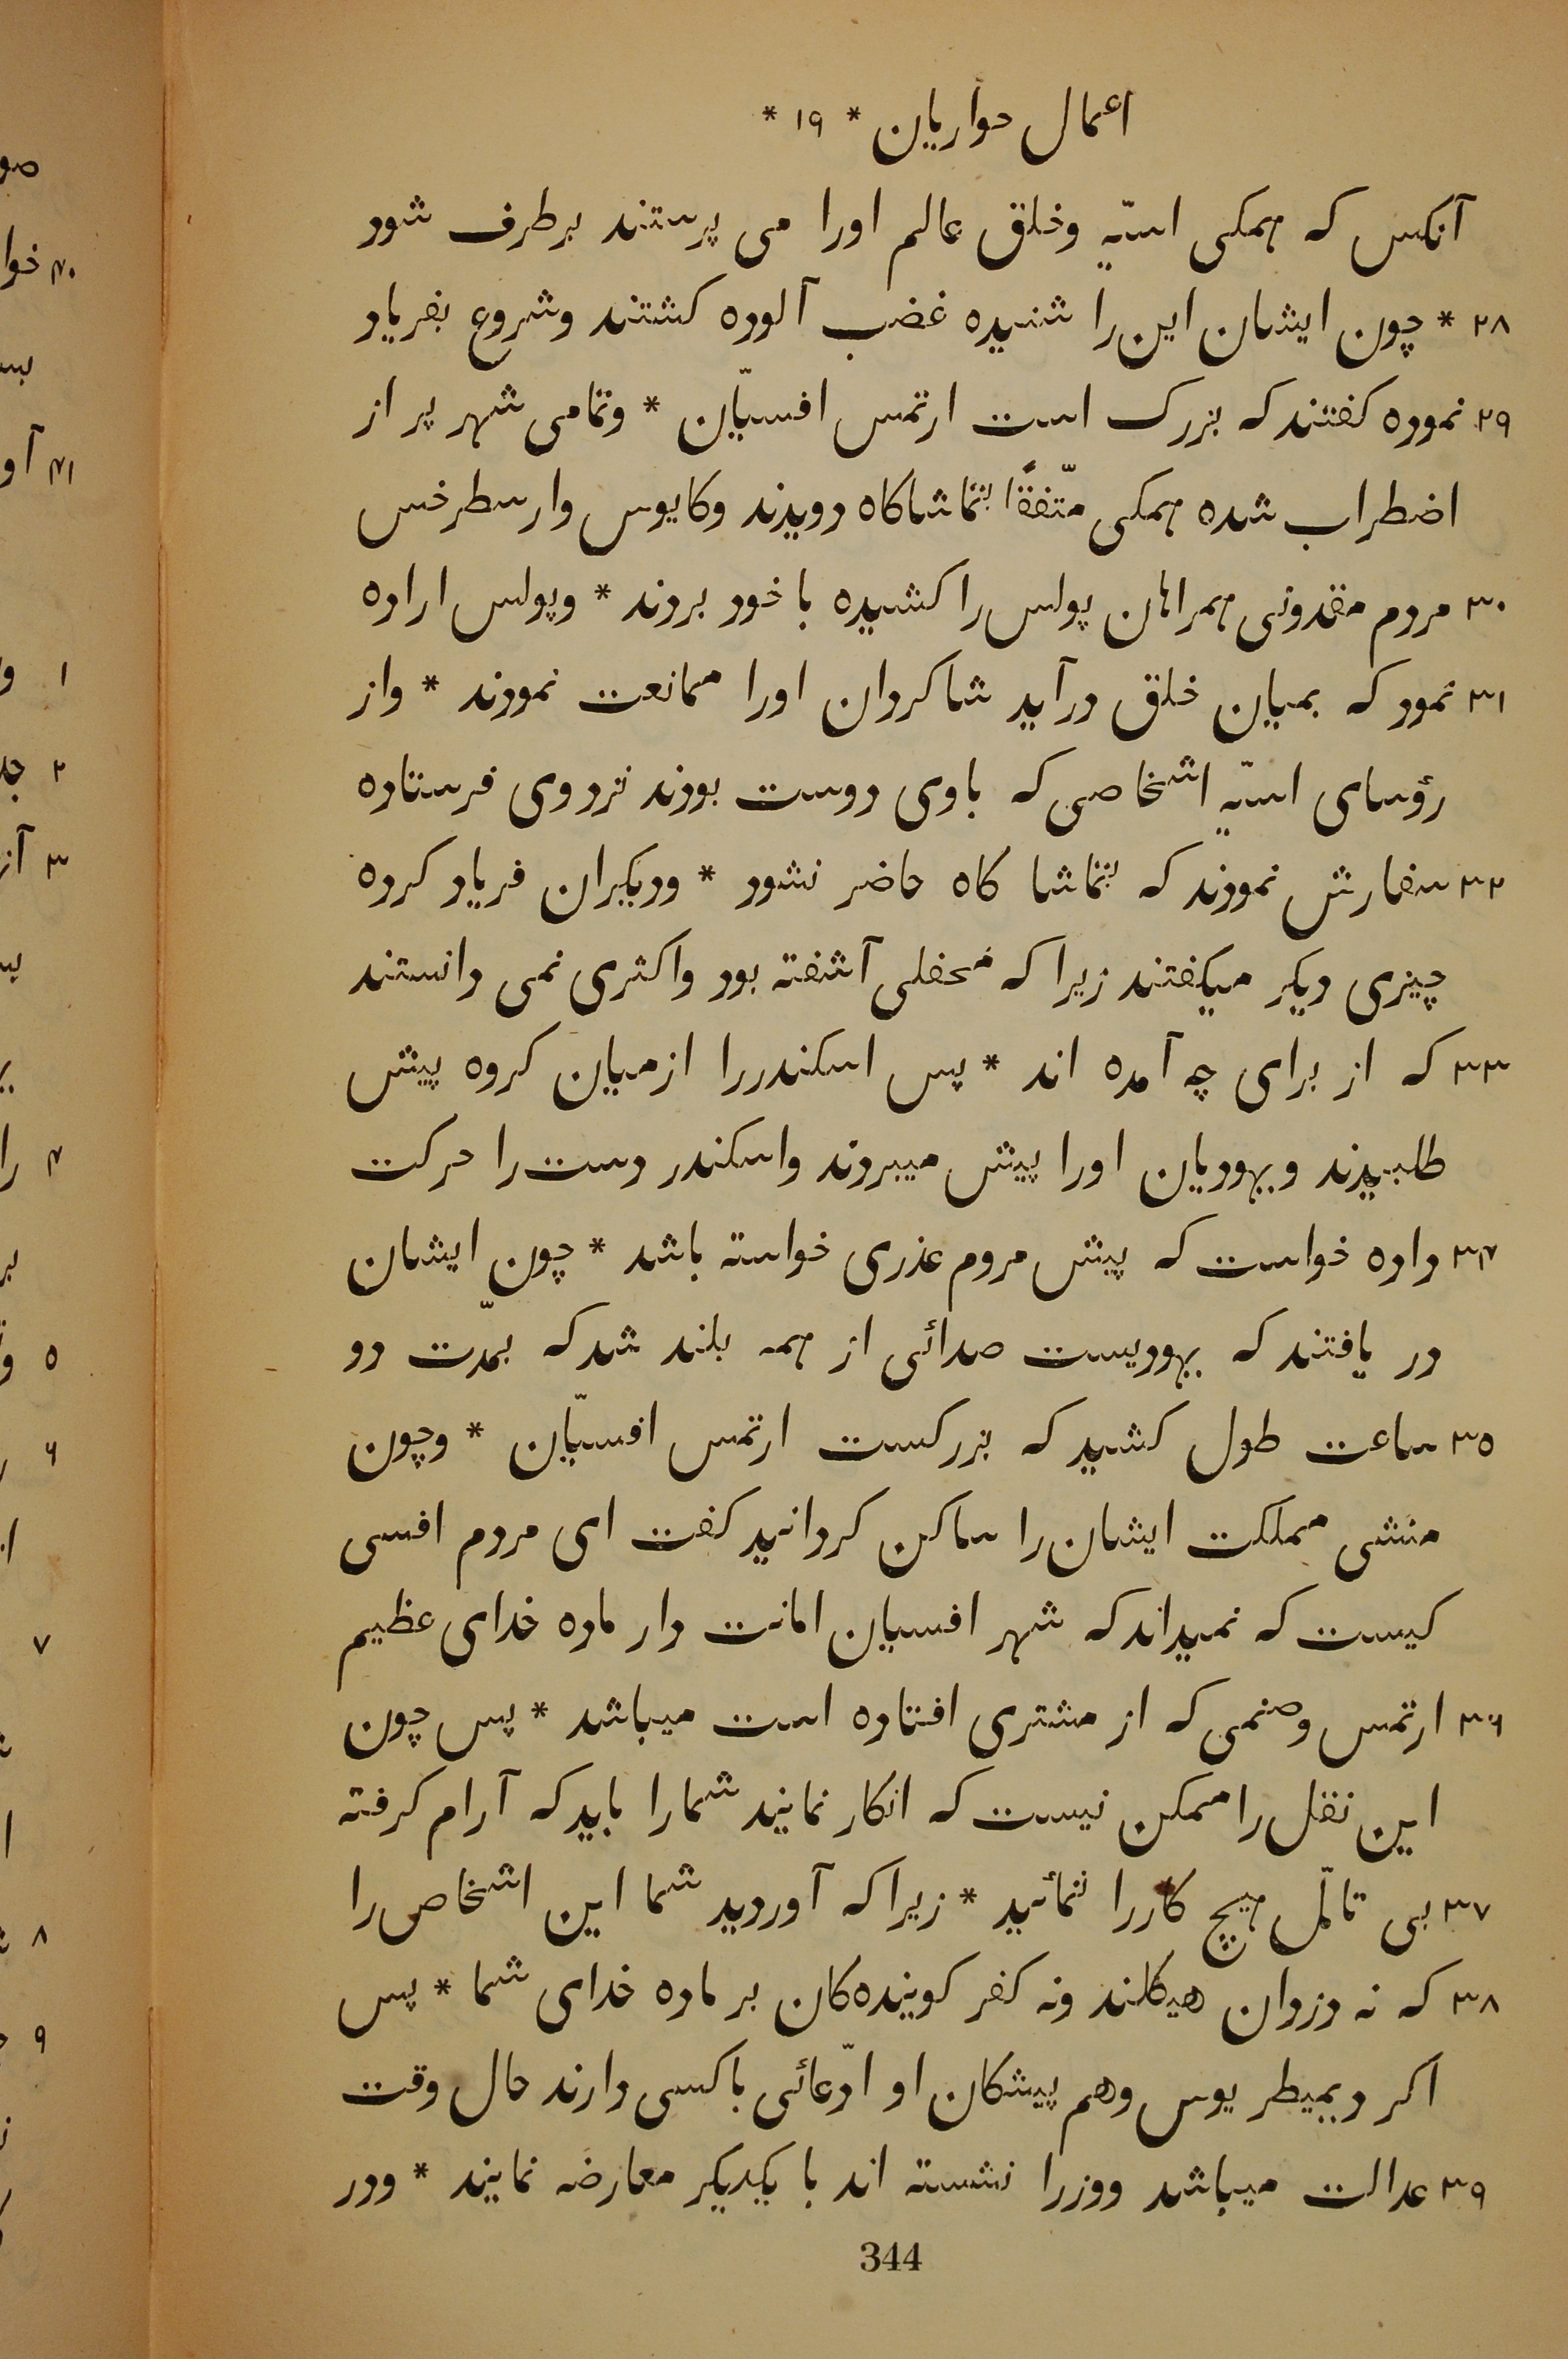 اعمال حواریان * ۱۹ *
آنکس که همکی اسیّه وخلق عالم اورا می پرستند برطرف شود
۲۸ * چون ایشان این را شنیده غضب آلوده کشتند وشروع بفریاد
۲۹ نموده کفتند که بزرک است ارتمس افسیّان * وتمامی شهر پر از
اضطراب شده همکی متّفقًا بتماشاکاه دویدند وکایوس وارسطرخس
۳۰ مردم مقدونی همراهان پولس را کشیده با خود بردند * وپولس اراده
۳۱ نمود که بمیان خلق درآید شاکردان اورا ممانعت نمودند * واز
رؤسای اسیّه اشخاصی که باوی دوست بودند نزد وی فرستاده
۳۲ سفارش نمودند که بتماشا کاه حاضر نشود * ودیکران فریاد کرده
چیزی دیکر میکفتند زیرا که محفلی آشفته بود واکثری نمی دانستند
۳۳ که از برای چه آمده اند * پس اسکندررا ازمیان کروه پیش
طلبیدند ویهودیان اورا پیش میبردند واسکندر دست را حرکت
۳۴ داده خواست که پیش مردم عذری خواسته باشد * چون ایشان
در یافتند که یهودیست صدائی از همه بلند شد که بمدّت دو
۳۵ ساعت طول کشید که بزرکست ارتمس افسیّان * وچون
منشی مملکت ایشان را ساکن کردانید کفت ای مردم افسی
کیست که نمیداند که شهر افسیان امانت دار ماده خدای عظیم
۳۶ ارتمس وصنمی که از مشتری افتاده است میباشد * پس چون
این نقل را ممکن نیست که انکار نمایند شمارا باید که آرام کرفته
۳۷ بی تامّل هیچ کاررا ننمائید * زیرا که آوردید شما این اشخاص را
۳۸ که نه دزدان هیکلند ونه کفر کوینده‌کان بر ماده خدای شما * پس
اکر دیمیطریوس وهم پیشکان او ادّعائی باکسی دارند حال وقت
۳۹ عدالت میباشد ووزرا نشسته اند با یکدیکر معارضه نمایند * ودر
344